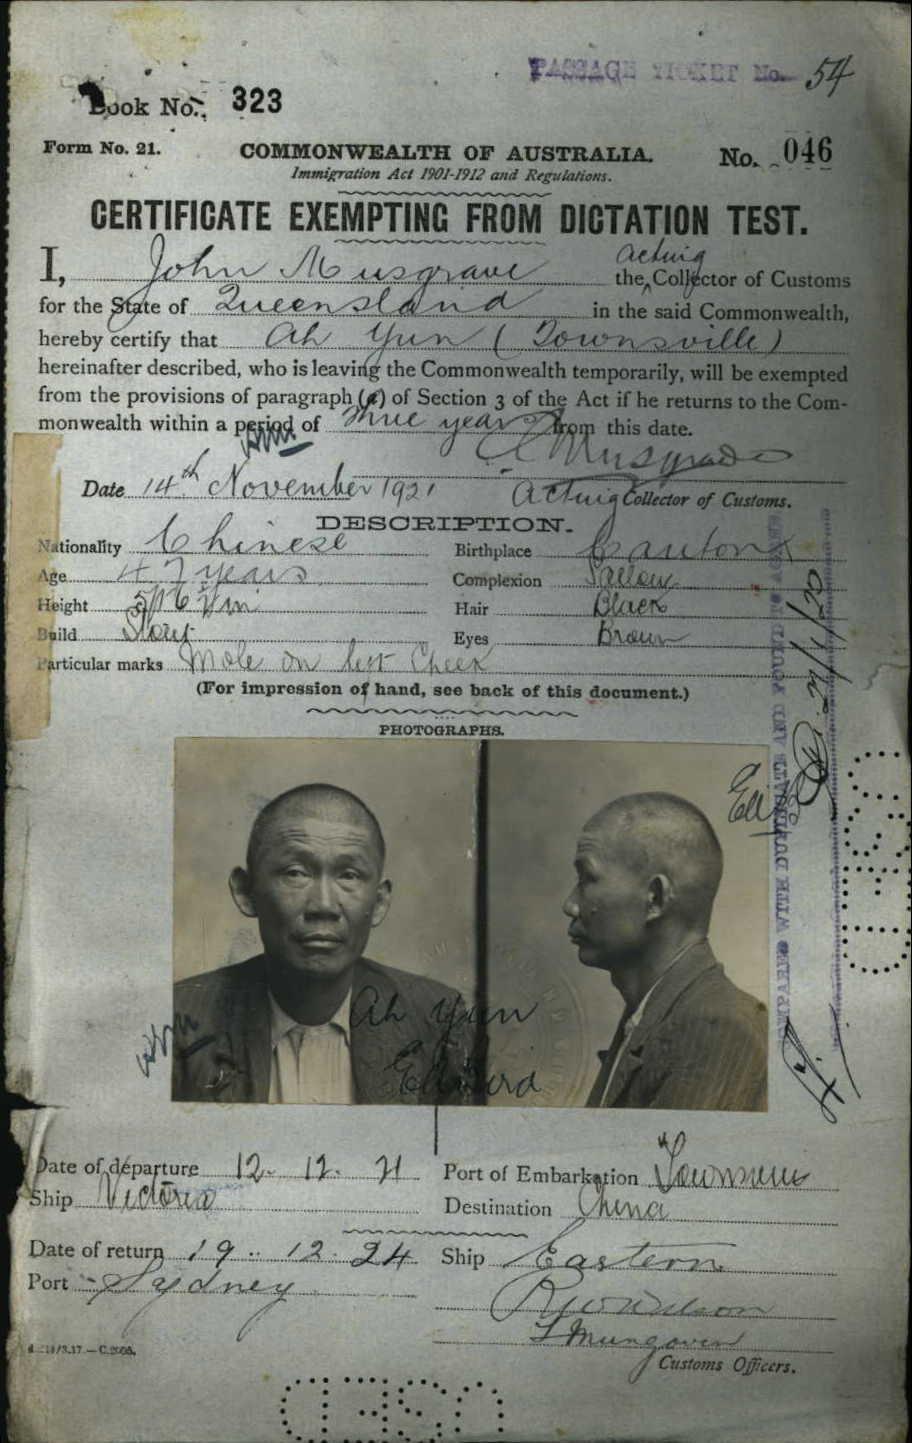 PASSAGE TICKET No. 54
Book No. 323
Form No. 21.
COMMONWEALTH OF AUSTRALIA.
No. 046
Immigration Act 1901-1912 and Regulations.
CERTIFICATE EXEMPTING FROM DICTATION TEST.
I, John Musgrave the acting Collector of Customs
for the State of Queensland in the said Commonwealth,
hereby certify that Ah Yun (Townsville)
hereinafter described, who is leaving the Commonwealth temporarily, will be exempted
from the provisions of paragraph (a) of Section 3 of the Act if he returns to the Com-
monwealth within a period of three years from this date.
Musgrave
Date 14th November 1921
Acting Collector of Customs.
DESCRIPTION.
Nationality Chinese Birthplace Canton
Age 47 years Complexion Sallow
Height Hair Black
Build Stout Eyes Brown
Particular marks Mole on left Cheek
(For impression of hand, see back of this document.)
PHOTOGRAPHS.
Ah Yun
Edward
Date of departure 12. 12. 21 Port of Embarkation Townsville
Ship Victoria Destination China
Date of return 19. 12. 24 Ship Eastern
Port Sydney
Customs Officers.
COMPARED WITH DUPLICATE AND FOUND TO AGREE
USED
USED